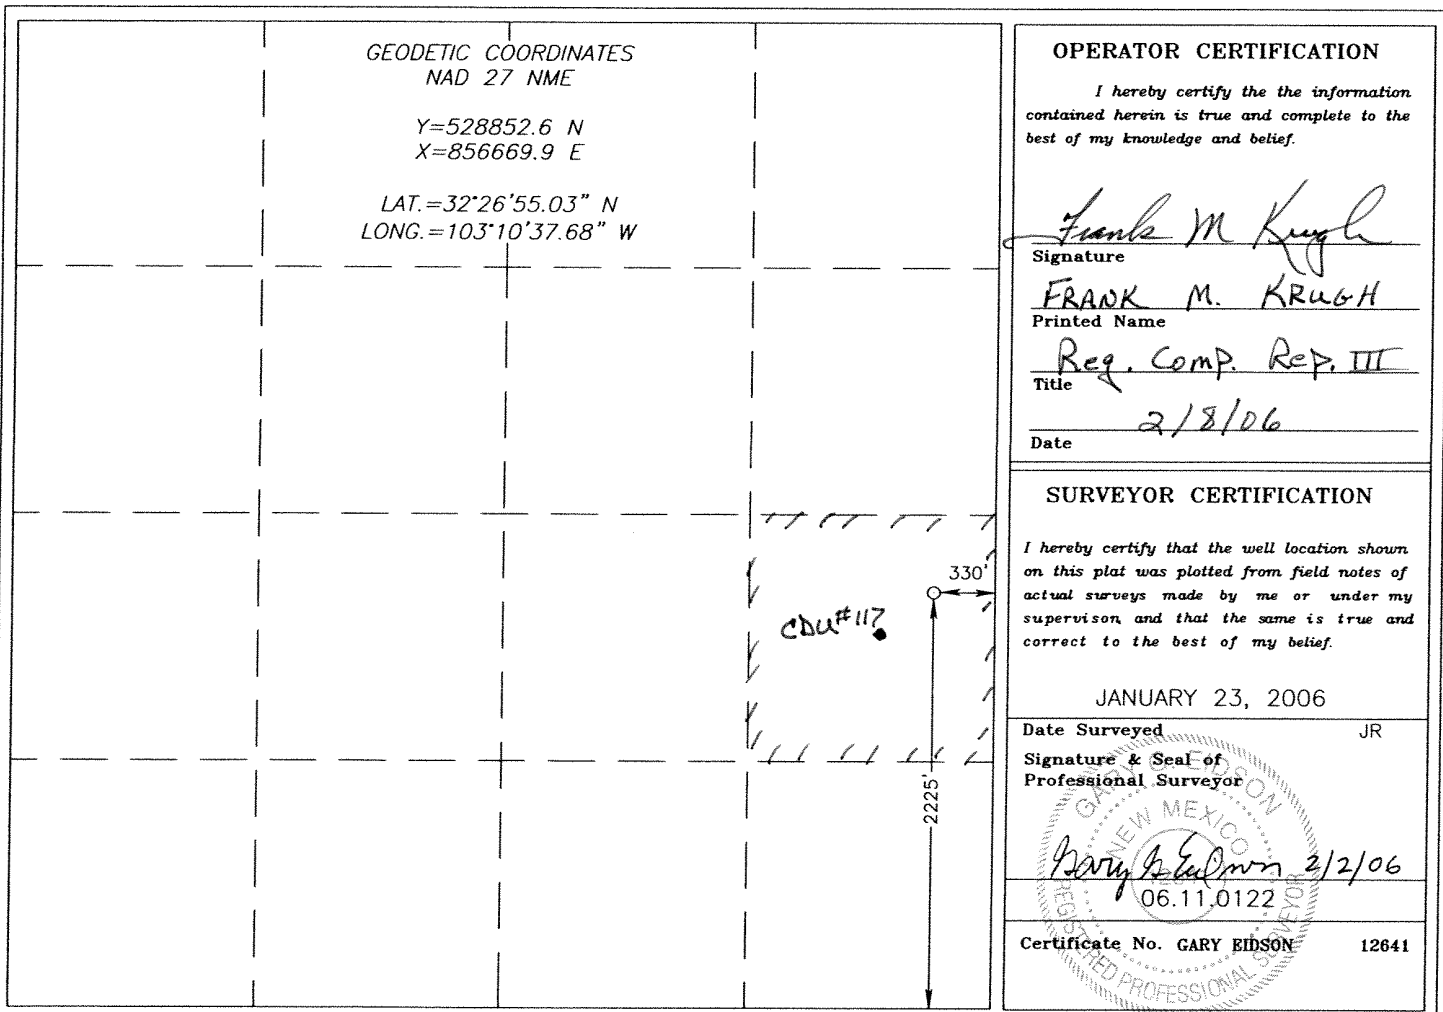 GEODETIC COORDINATES
NAD 27 NME
Y=528852.6 N
X=856669.9 E
LAT.=32°26'55.03" N
LONG.=103°10'37.68" W
330'
CDU#117
2225'
OPERATOR CERTIFICATION
I hereby certify the the information
contained herein is true and complete to the
best of my knowledge and belief.
Frank M Krugh
Signature
FRANK M. KRUGH
Printed Name
Reg. Comp. Rep. III
Title
2/8/06
Date
SURVEYOR CERTIFICATION
I hereby certify that the well location shown
on this plat was plotted from field notes of
actual surveys made by me or under my
supervison and that the same is true and
correct to the best of my belief.
JANUARY 23, 2006
Date Surveyed JR
Signature & Seal of
Professional Surveyor
GARY G. EIDSON
NEW MEXICO
REGISTERED PROFESSIONAL SURVEYOR
Gary G Eidson 2/2/06
06.11.0122
Certificate No. GARY EIDSON 12641